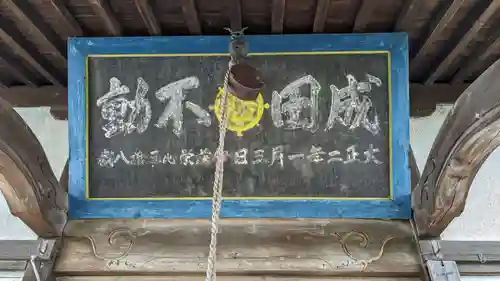 成田不動
大正二年一月三日